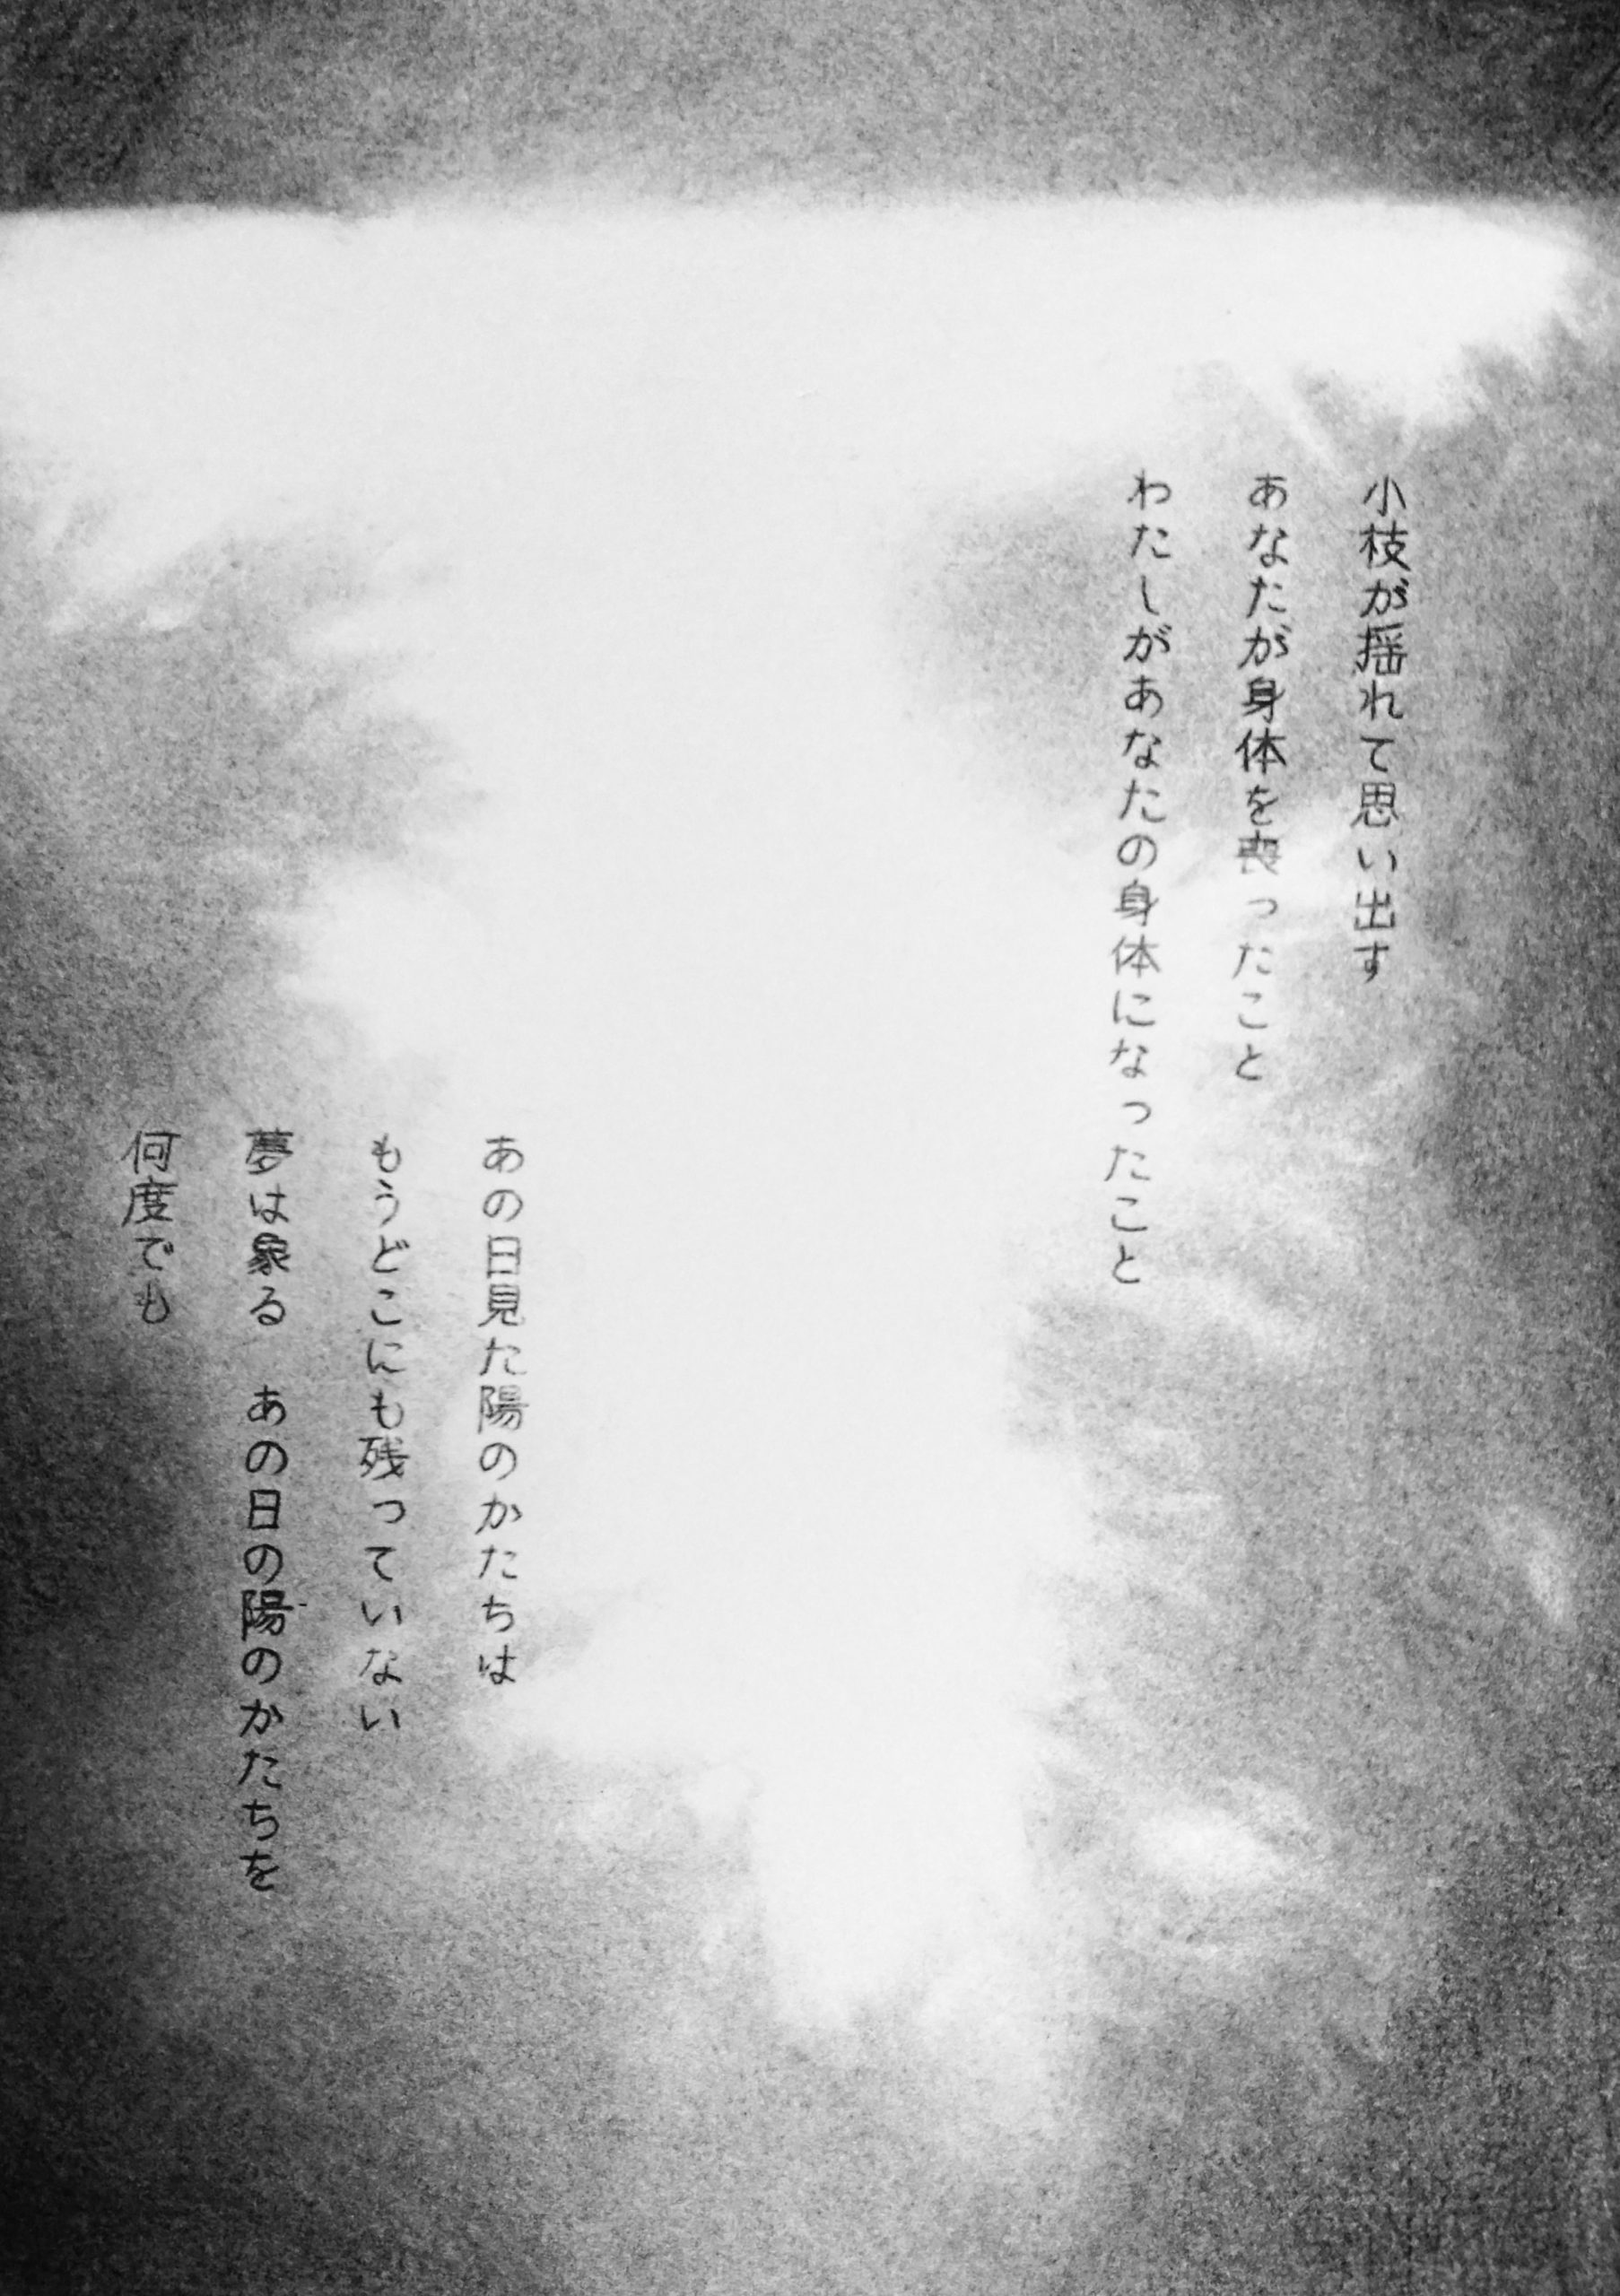 小枝が揺れて思い出す
あなたが身体を喪ったこと
わたしがあなたの身体になったこと
あの日見た陽のかたちは
もうどこにも残っていない
夢は象る　あの日の陽のかたちを
何度でも